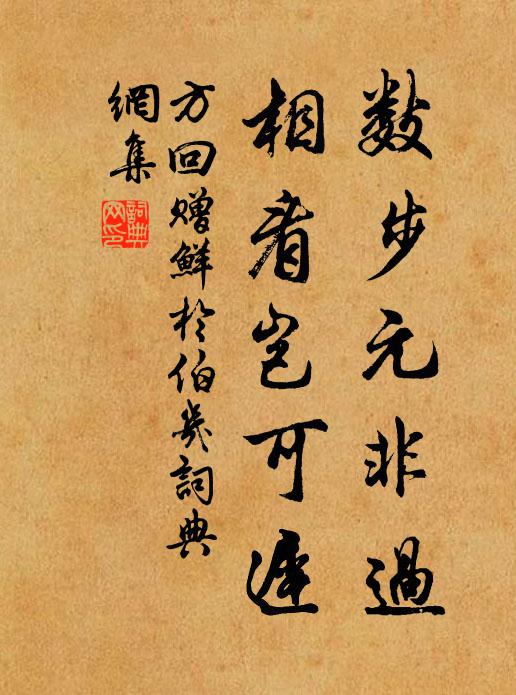 數步元非過
相看豈可遲
方回贈鮮於伯幾詞典
網集
詞典